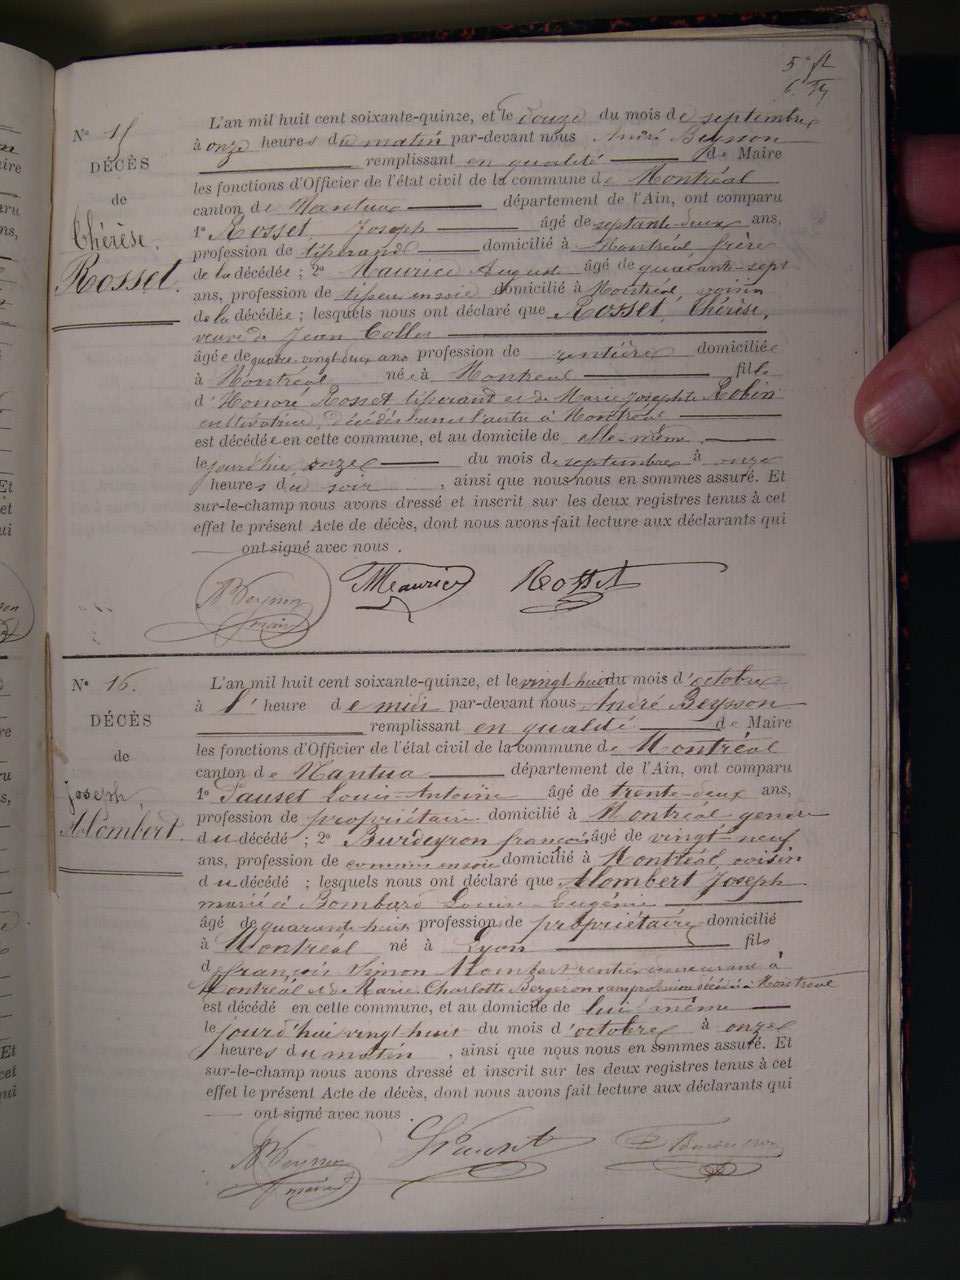 N° 15
DÉCÈS
de
Thérèse.
Rosset.
L'an mil huit cent soixante-quinze, et le douze du mois de septembre
à onze heures du matin par-devant nous André Beysson
remplissant en qualité de Maire
les fonctions d'Officier de l'état civil de la commune de Montréal
canton de Nantua département de l'Ain, ont comparu
1° Rosset Joseph âgé de septante-deux ans,
profession de tisserand domicilié à Montréal frère
de la décédée ; 2° Maurice Auguste âgé de quarante-sept
ans, profession de tisseur en soie domicilié à Montréal, voisin
de la décédée ; lesquels nous ont déclaré que Rosset, Thérèse,
veuve de Jean Collet
âgée de quatre-vingt-deux ans profession de rentière domiciliée
à Montréal née à Montréal fille
d'Honoré Rosset tisserand et de Marie Josephte Robin
cultivatrice, décédés l'un et l'autre à Montréal
est décédée en cette commune, et au domicile de elle-même.
le jourd'hier onze du mois de septembre à onze
heures du soir , ainsi que nous nous en sommes assuré. Et
sur-le-champ nous avons dressé et inscrit sur les deux registres tenus à cet
effet le présent Acte de décès, dont nous avons fait lecture aux déclarants qui
ont signé avec nous .
maire Maurice Rosset
N° 16.
DÉCÈS
de
Joseph,
Alombert.
L'an mil huit cent soixante-quinze, et le vingt huit du mois d'octobre
à l'heure de midi par-devant nous André Beysson
remplissant en qualité de Maire
les fonctions d'Officier de l'état civil de la commune de Montréal
canton de Nantua département de l'Ain, ont comparu
1° Louis-Antoine âgé de trente-deux ans,
profession de propriétaire domicilié à Montréal gendre
du décédé ; 2° Burdeyron françois âgé de vingt-neuf
ans, profession de domicilié à Montréal, voisin
du décédé ; lesquels nous ont déclaré que Alombert Joseph
marié à Bombard Louise Eugénie
âgé de quarante huit profession de propriétaire domicilié
à Montréal né à Lyon fils
de françois Simon Alombert rentier demeurant à
Montréal et de Marie Charlotte Bergeron sans profession décédée à Montréal
est décédé en cette commune, et au domicile de lui même
le jourd'hui vingt-huit du mois d'octobre à onze
heures du matin , ainsi que nous nous en sommes assuré. Et
sur-le-champ nous avons dressé et inscrit sur les deux registres tenus à cet
effet le présent Acte de décès, dont nous avons fait lecture aux déclarants qui
ont signé avec nous .
maire